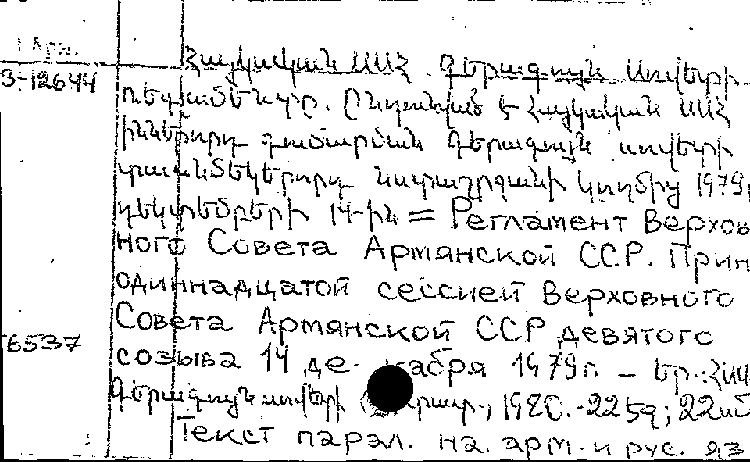 1 Арм.
Հայկական ՍՍՀ. Գերագույն Սովետի
3-12644
ռեգլամենտը. Ընդունված է Հայկական ՍՍՀ
իններորդ գումարման Գերագույն սովետի
տասնմեկերորդ նստաշրջանի կողմից 1979
դեկտեմբերի 14-ին = Регламент Верхов
ного Совета Армянской ССР. Прин
одиннадцатой сессией Верховного
Совета Армянской ССР девятого
6537
созыва 14 де кабря 1979г. – Եր.: ՀՍՍ
Գերագույն սովետի 1980.-225գ; 22
Текст парал. на арм. и рус. яз